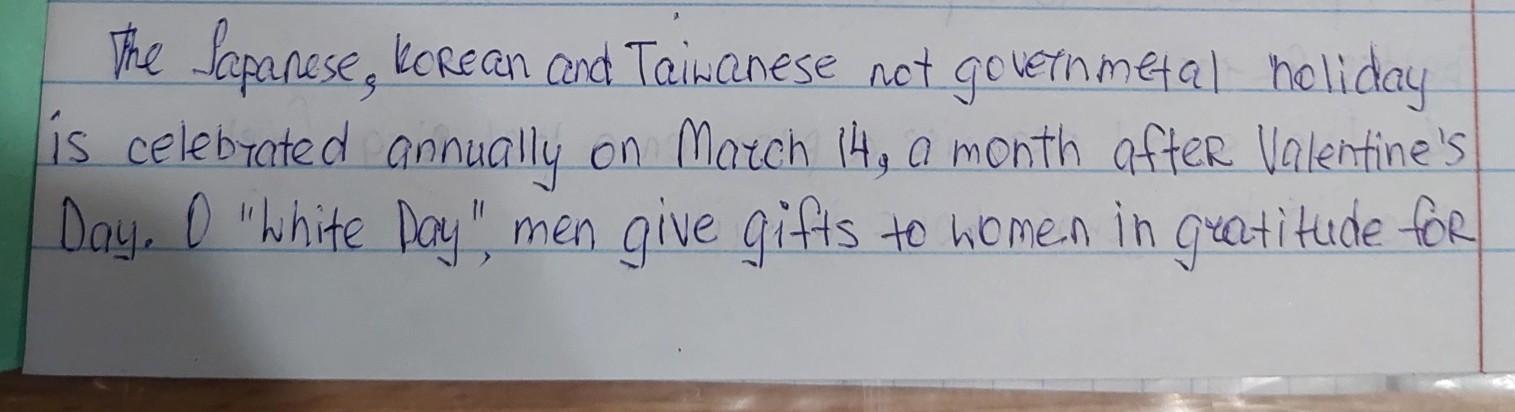 The Japanese, Korean and Taiwanese not governmetal holiday
is celebrated annually on March 14, a month after Valentine's
Day. O "White Day", men give gifts to women in gratitude for